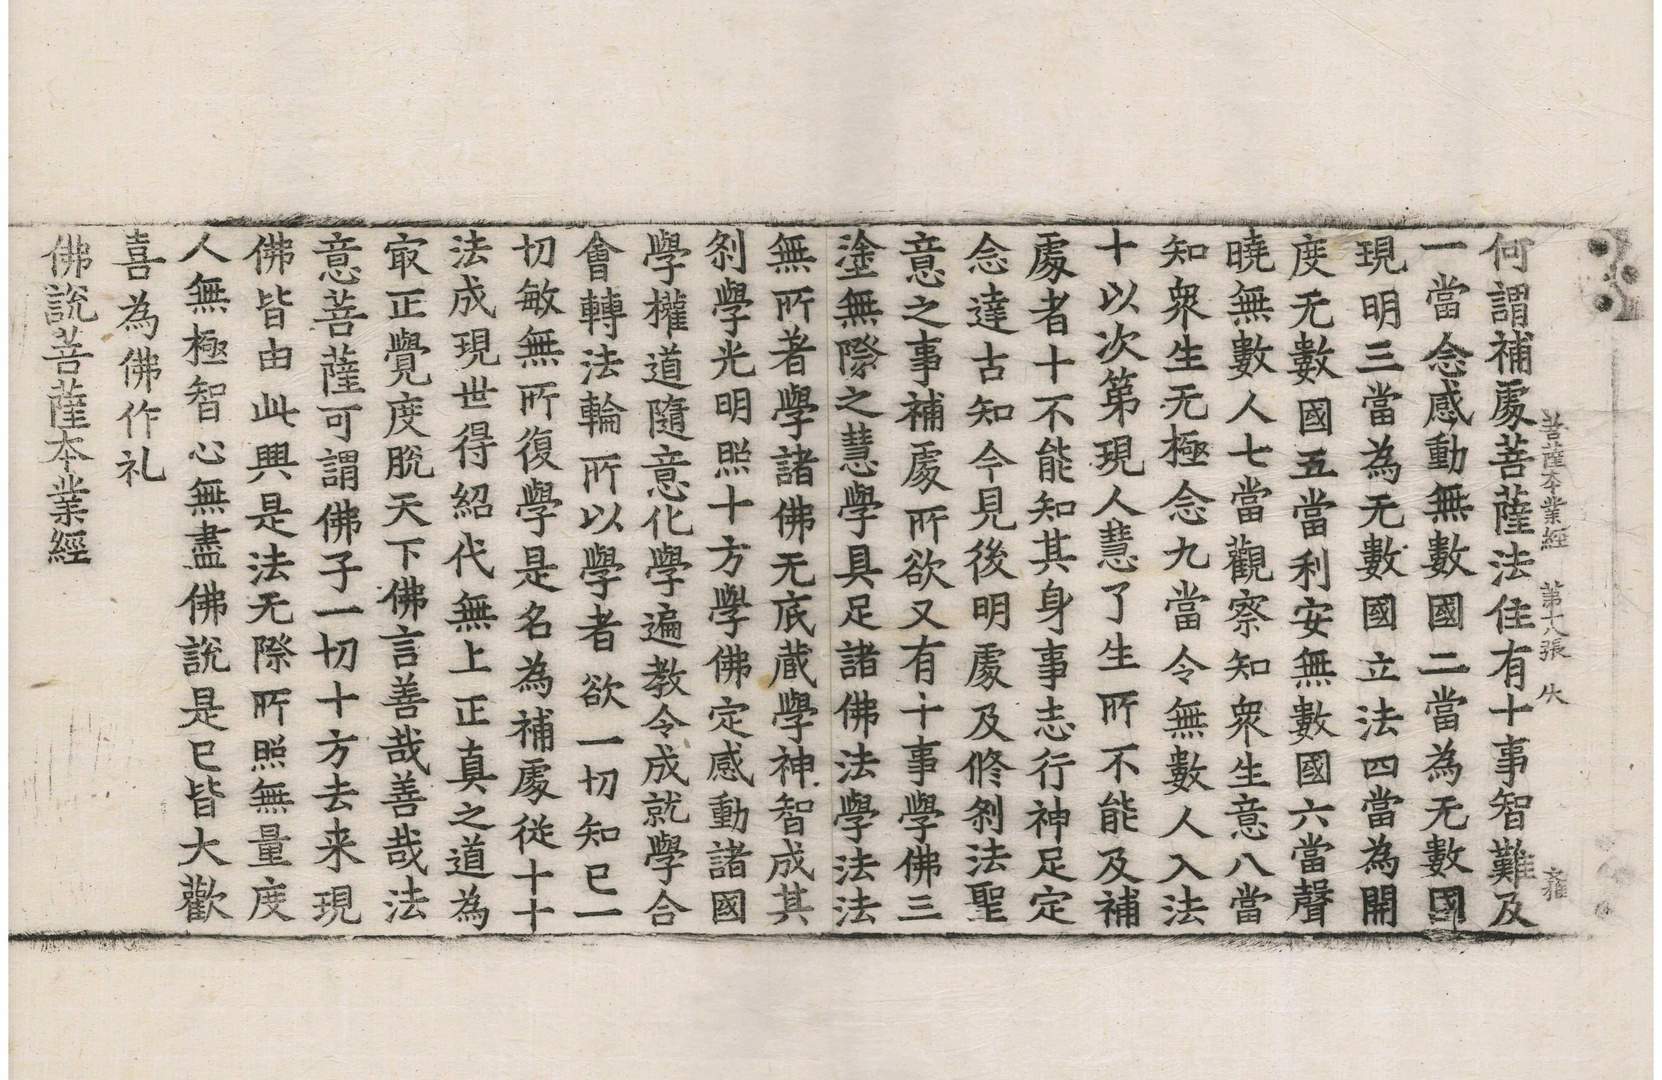 菩薩本業經 第十八張 女 雍
何謂補處菩薩法住有十事智難及
一當念感動無數國二當為无數國
現明三當為无數國立法四當為開
度无數國五當利安無數國六當聲
曉無數人七當觀察知衆生意八當
知衆生无極念九當令無數人入法
十以次第現人慧了生所不能及補
處者十不能知其身事志行神足定
念達古知今見後明處及修刹法聖
意之事補處所欲又有十事學佛三
塗無際之慧學具足諸佛法學法法
無所著學諸佛无底蔵學神智成其
刹學光明照十方學佛定感動諸國
學權道隨意化學遍教令成就學合
會轉法輪所以學者欲一切知已一
切敏無所復學是名為補處従十十
法成現世得紹代無上正真之道為
㝡正覺度脫天下佛言善哉善哉法
意菩薩可謂佛子一切十方去来現
佛皆由此興是法无際所照無量度
人無極智心無盡佛說是已皆大歡
喜為佛作礼
佛說菩薩本業經